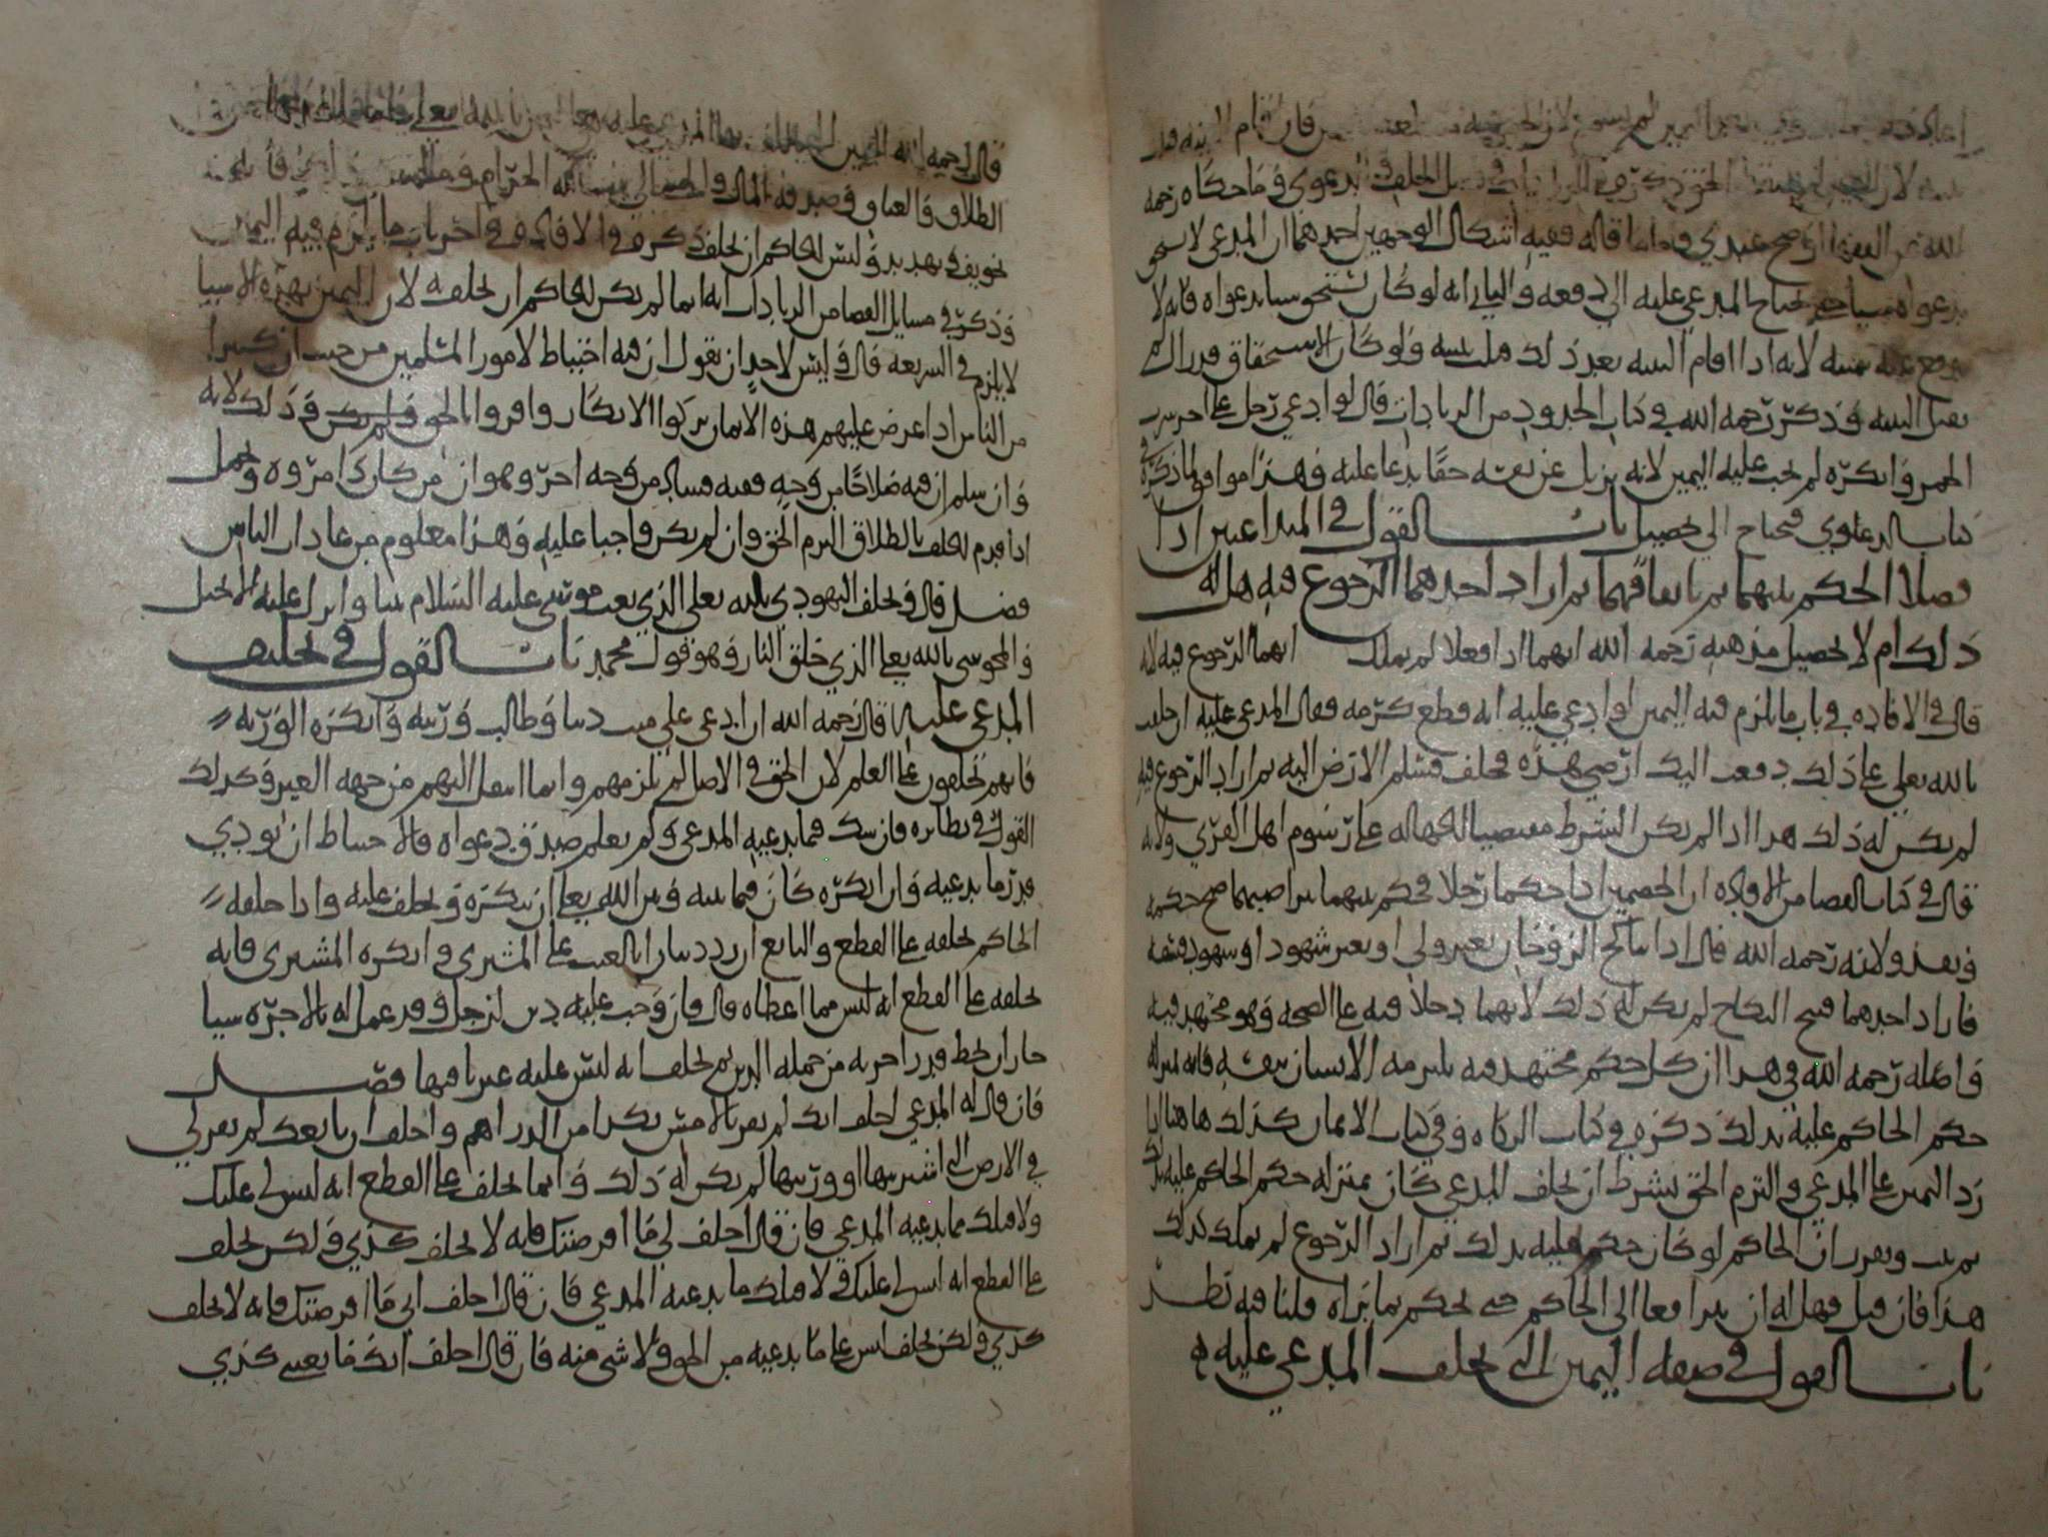 فان قام البينة
لان الحق ذكره في الزيادات في الحلف في الدعوى وما حكاه رحمه
الله اوضح عندي واما ما قاله ففيه اشكال الوجهين احدهما ان المدعي لا يستحق
بدعواه شيا حتى يحتاج المدعى عليه الى دفعه والثاني انه لو كان يستحق شيا بدعواه فانه لا
لانه اذا اقام البينة بعد ذلك قبلت بينته ولو كان الاستحقاق قد زال لم
تقبل البينة وذكر رحمه الله في كتاب الحدود من الزيادات قال لو ادعى رجل على اخر شرب
الخمر وانكره لم تجب عليه اليمين لانه يزيل عن نفسه حقا يدعا عليه وهذا موافق لما ذكره في
كتاب الدعاوي فيحتاج الى تحصيل باب القول في المتداعيين اذا
فصلا الحكم بينهما بتراضيهما ثم اراد احدهما الرجوع فيه هل له
ذلك ام لا تحصيل مذهبه رحمه الله انهما اذا فعلا لم يملك ايهما الرجوع فيه لانه
قال في الافادة في باب ما يلزم فيه اليمين لو ادعى عليه انه قطع كرمه فقال المدعى عليه ان حلفت
بالله تعلى على ذلك دفعت اليك ارضي هذه فحلف فسلم الارض اليه ثم اراد الرجوع فيه
لم يكن له ذلك هذا اذا لم يكن الشرط مقتضيا للجهالة على رسوم اهل القرى ولانه
قال في كتاب القضا من الافادة ان الخصمين اذا حكما رجلا فحكم بينهما بتراضيهما صح حكمه
ونفذ ولانه رحمه الله قال اذا تناكح الزوجان بغير ولي او بغير شهود او شهود فسقه
فاراد احدهما فسخ النكاح لم يكن له ذلك لانهما دخلا فيه على الصحة وهو مجتهد فيه
واصله رحمه الله في هذا ان كل حكم مجتهد فيه يلتزمه الانسان بنفسه فانه بمنزلة
حكم الحاكم عليه بذلك ذكره في كتاب الزكاة وفي كتاب الايمان كذلك هاهنا اذا
رد اليمين على المدعي والتزم الحق بشرط ان يحلف المدعي كان بمنزلة حكم الحاكم عليه بذلك
ثم ثبت وتقرر ان الحاكم لو كان حكم عليه بذلك ثم اراد الرجوع لم يملك كذلك
هذا فان قيل فهل له ان يترافعا الى الحاكم حتى يحكم بما يراه قلنا فيه نظر
باب القول في صفة اليمين التي يحلف المدعى عليه
قال رحمه الله اليمين المدعى عليه بالله تعلى
الطلاق والعتاق وصدقة المال الحرام
تخويف وتهديد وليس للحاكم ان يحلف ذكره في الافادة في اخر باب ما يلزم فيه اليمين
وذكر في مسايل القضا من الزيادات انه انما لم يكن للحاكم ان يحلفه لان اليمين بهذه الاشيا
لا يلزم في الشريعة قال وليس لاحد ان يقول ان فيه احتياط لامور المسلمين من حيث ان كثيرا
من الناس اذا عرض عليهم هذه الايمان تركوا الانكار واقروا بالحق وذلك لانه
وان سلم ان فيه صلاحا من وجه ففيه فساد من وجه اخر وهو ان من كان ذا مروه وتجمل
اذا قدم للحلف بالطلاق التزم الحق وان لم يكن واجبا عليه وهذا معلوم من عادات الناس
فصل قال ويحلف اليهودي بالله تعلى الذي بعث موسى عليه السلام نبيا وانزل عليه الانجيل
والمجوسي بالله تعلى الذي خلق النار وهو قول محمد باب القول في تحليف
المدعى عليه قال رحمه الله ان ادعى على ميت دينا وطالب ورثته وانكره الورثة
فانهم يحلفون على العلم لان الحق في الاصل لم يلزمهم وانما انتقل اليهم من جهة الغير وكذلك
القول في نظائره فان شك فيما يدعيه المدعي ولم يعلم صدق دعواه فالاحتياط ان يودي
قدر ما يدعيه وان انكره كان فيما بينه وبين الله تعلى ان ينكره ويحلف عليه واذا حلفه
الحاكم يحلفه على القطع والبايع ان رد دينارا بالعيب على المشتري وانكره المشتري فانه
يحلفه على القطع انه ليس مما اعطاه قال فان وجب عليه دين لرجل وقد عمل له بالاجرة شيا
جاز ان يحط قدر اجرته من جملة الدين ثم يحلف انه ليس عليه غير باقيها فصل
فان قال له المدعي احلف انك لم تقر بالامس بكذا من الدراهم واحلف ان بايعك لم يقر لي
في الارض التي اشتريتها او ورثتها لم يكن له ذلك وانما يحلف على القطع انه ليس لي عليك
ولا قبلك ما يدعيه المدعي فان قال احلف لي ما اقرضتك فانه لا يحلف كذي ولكن يحلف
على القطع انه ليس لي عليك ولا قبلك ما يدعيه المدعي فان قال احلف اني ما اقرضتك فانه لا يحلف
كذي ولكن يحلف ليس على ما يدعيه من الحق ولا شي منه فان قال احلف انك ما بعتني كذي